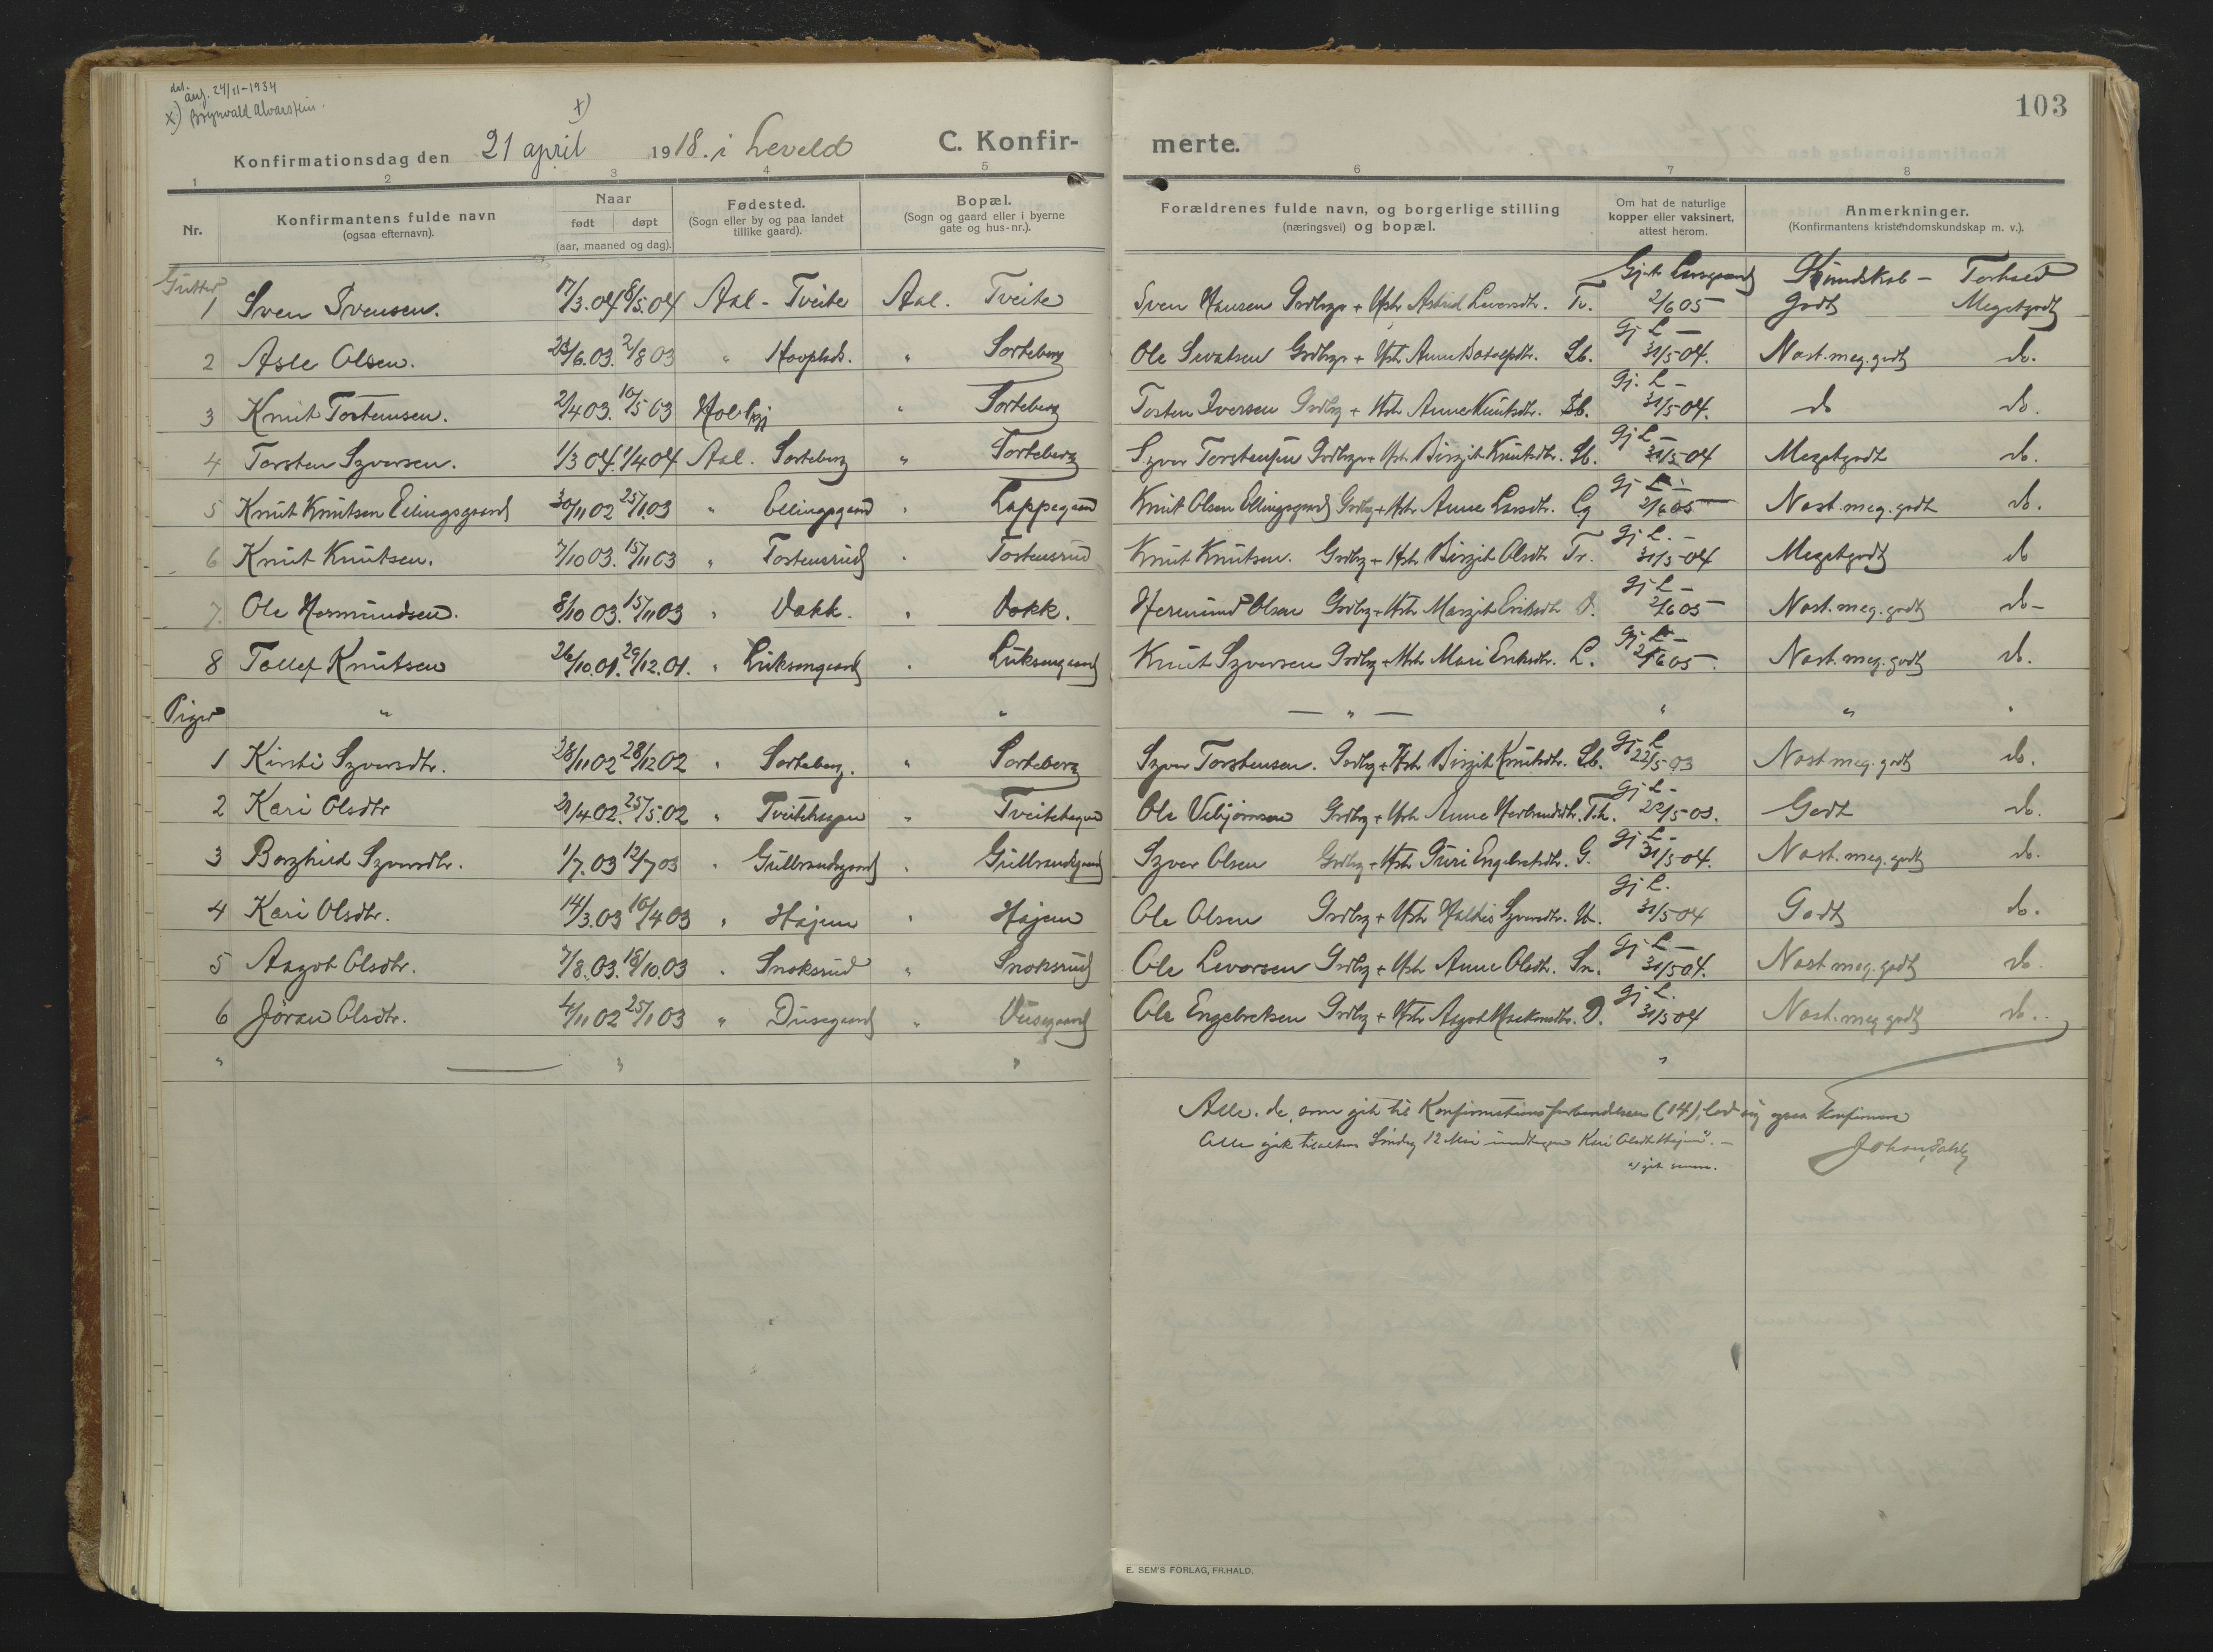 dat. anf. 24/11-1934
x) Brynvald Alvarstein.
x)
103
Konfirmationsdag den 21 april 1918. i Leveld C. Konfir- merte.
1 2 3 4 5 6 7 8
Nr. Konfirmantens fulde navn (ogsaa efternavn). Naar født døpt (aar, maaned og dag). Fødested. (Sogn eller by og paa landet tillike gaard). Bopæl. (Sogn og gaard eller i byerne gate og hus-nr.). Forældrenes fulde navn, og borgerlige stilling (næringsvei) og bopæl. Om hat de naturlige kopper eller vaksinert, attest herom. Anmerkninger. (Konfirmantens kristendomskundskap m. v.).
Gutter Kundskab - Forhold
1 Sven Svensen. 17/3.04 8/5.04 Aal - Tveite Aal. Tveite Sven Hansen Grdbrgr + Hstr Astrid Leversdtr. Tv. 2/6 05 Godt Megetgodt
2 Asle Olsen. 23/6.03. 2/8 03 " Hovplads. " Sorteberg Ole Sevatsen Grdbrgr + Hstr Anne Botolfsdtr. Sb. Gj L - 31/5-04. Nast. meg. godt do.
3 Knut Tostensen. 2/4 03. 10/5 03 Hol " Sorteberg Tosten Iversen Grdbrg + Hstr Anne Knutsdtr. Sb. Gj. L - 31/5-04. do do.
4 Torsten Syversen. 1/3 04. 1/4 04 Aal. Sorteberg " Sorteberg Syver Torstensen Grdbrgr + Hstr Birgit Knutsdtr. Sb. Gj L - 31/5-04 Megetgodt do.
5 Knut Knutsen Ellingsgaard 30/11 02 25/1.03 " Ellingsgaard " Lappegaard Knut Olsen Ellingsgaard Grdbrg + Hstr Anne Larsdtr. Lg Gj L - 2/6 05 Nast. meg. godt do.
6 Knut Knutsen. 7/10 03. 15/11 03 " Tostensrud " Tostensrud Knut Knutsen. Grdbrg + Hstr Birgit Olsdtr Tr. Gj L. - 31/5-04 Megetgodt do
7. Ole Hermundsen. 8/10 03. 15/11 03 " Vakk. " Vakk. Hermund Olsen Grdbrg + Hstr Margit Eriksdtr V. Gj L - 2/6 05 Nast. meg. godt do-
8 Tollef Knutsen 26/10.01. 29/12.01. " Luksengaard " Luksengaard Knut Syversen Grdbrg + Hstr Mari Eriksdtr. L. Gj L - 2/6 05. Nast. meg. godt do.
Piger " " - " - " " "
1 Kirsti Syversdtr. 28/11 02 28/12 02 " Sorteberg. " Sorteberg Syver Torstensen. Grdbrg + Hstr Birgit Knutsdtr. Sb. Gj L 22/5-03 Nast meg. godt do.
2 Kari Olsdtr 28/4 02. 25/5.02 " Tveitehagen " Tveitehagen Ole Vebjørnsen Grdbrg + Hstr Anne Herbrandsdtr. Th. Gj L - 22/5-03. Godt do.
3 Borghild Syversdtr. 1/7.03 12/7 03 " Gullbrandsgaard " Gullbrandsgaard Syver Olsen Grdbrg + Hstr Guri Engebretsdtr. G. Gj L - 31/5-04. Nast. meg. godt do.
4 Kari Olsdtr. 14/3.03 10/4 03 " Hajem " Hajem Ole Olsen Grdbrg + Hstr Haldis Syversdtr. H. Gj L. 31/5-04 Godt do.
5 Aagot Olsdtr. 7/8.03. 18/10.03 " Snoksrud " Snoksrud Ole Levorsen Grdbrg + Hstr Anne Olsdtr. Sn. Gj L - 31/5 04. Nast meg. godt do.
6 Jöran Olsdtr. 4/11 02 25/1 03 " Dusegaard " Dusegaard Ole Engebretsen Grdbrg + Hstr Aagot Haakonsdtr. D. Gj L. 31/5-04 Nast. meg. godt do.
" - " " "
Alle, de som gik til Konfirmationsforberedelsen (14), lod sig ogsaa konfirmere
Alle gik tilalters Søndag 12 Mai undtagen Kari Olsdtr Hajem x). -
x) gik senere.
Johan
E. SEM'S FORLAG, FR.HALD.